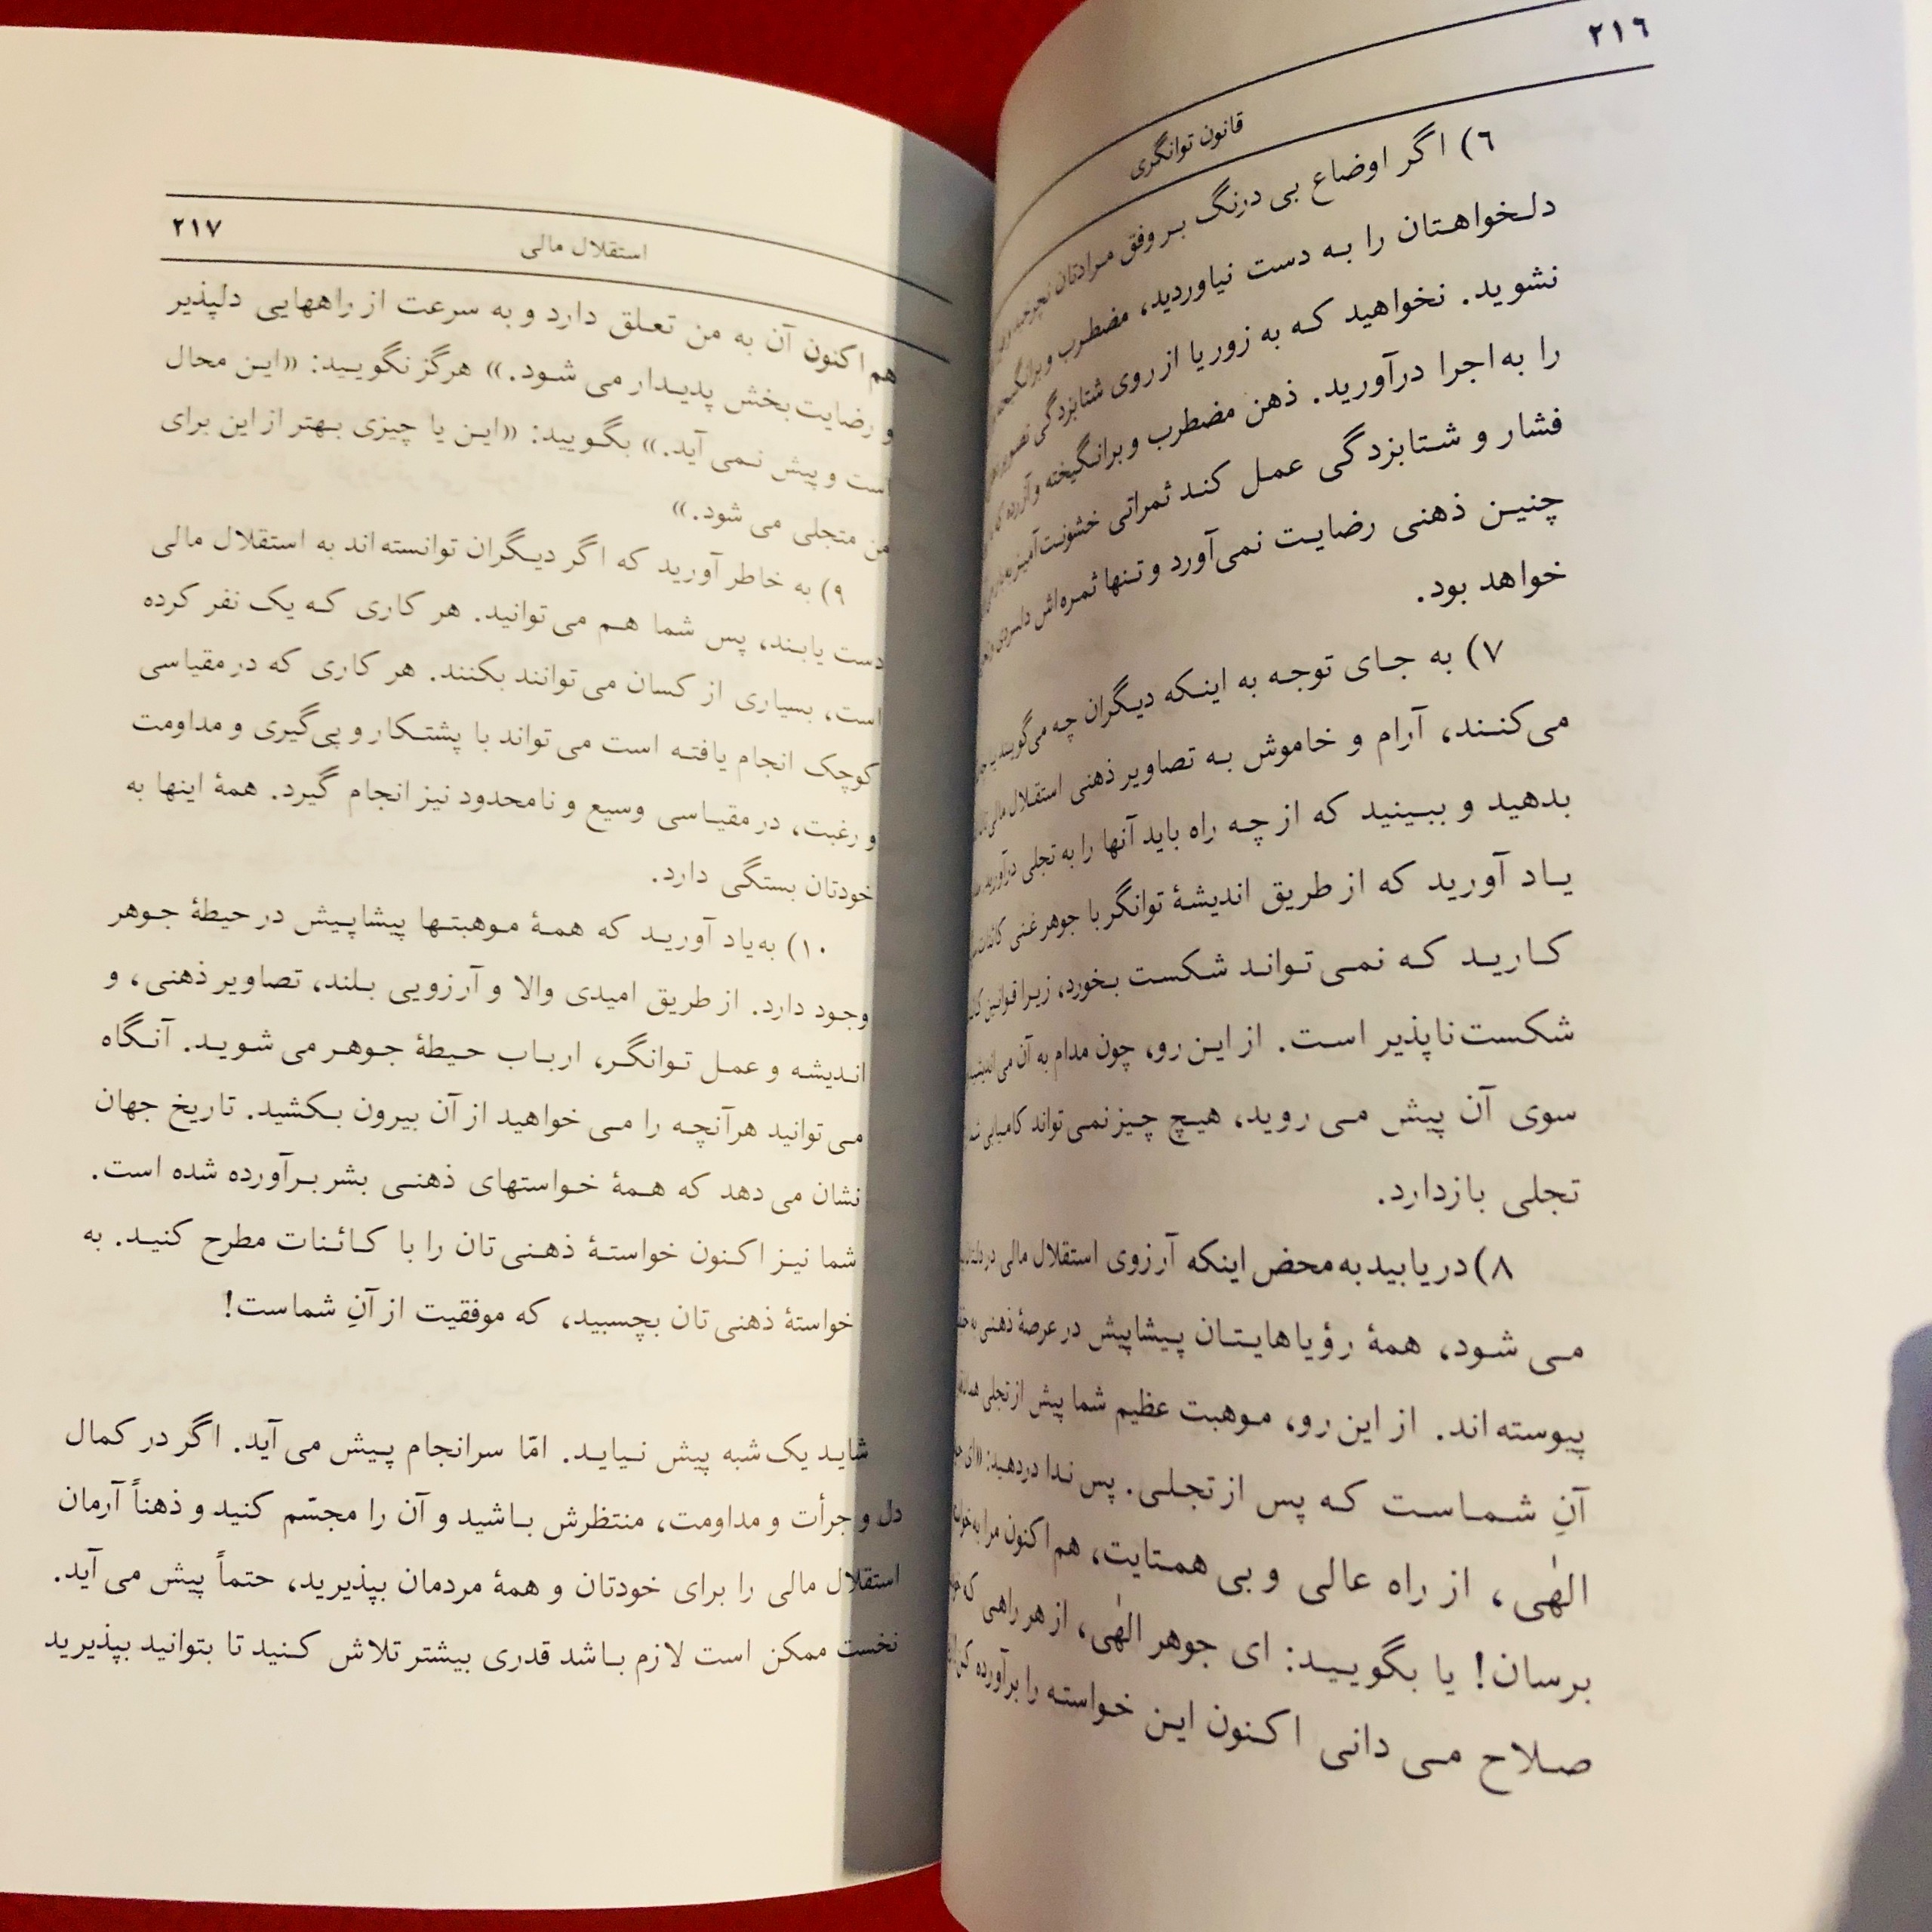 ۲۱۶
قانون توانگری
۶) اگر اوضاع بی درنگ بر وفق مرادتان نچرخید و
دلخواهتان را به دست نیاوردید، مضطرب و برانگیخته
نشوید. نخواهید که به زور یا از روی شتابزدگی تصویر
را به اجرا درآورید. ذهن مضطرب و برانگیخته و آزرده که
فشار و شتابزدگی عمل کند ثمراتی خشونت‌آمیز به بار می
چنین ذهنی رضایت نمی‌آورد و تنها ثمره‌اش دلسردی و
خواهد بود.
۷) به جای توجه به اینکه دیگران چه می‌گویند یا چه
می‌کنند، آرام و خاموش به تصاویر ذهنی استقلال مالی‌تان
بدهید و ببینید که از چه راه باید آنها را به تجلی درآورید.
یاد آورید که از طریق اندیشهٔ توانگر با جوهر غنی کائنات
کارید که نمی‌تواند شکست بخورد، زیرا قوانین
شکست‌ناپذیر است. از این رو، چون مدام به آن می‌اندیشید
سوی آن پیش می روید، هیچ چیز نمی تواند کامیابی
تجلی بازدارد.
۸) دریابید به محض اینکه آرزوی استقلال مالی در دلتان
می شود، همهٔ رؤیاهایتان پیشاپیش در عرصهٔ ذهنی به
پیوسته اند. از این رو، موهبت عظیم شما پیش از تجلی
آنِ شماست که پس از تجلی. پس ندا دردهید: «ای
الهٰی، از راه عالی و بی همتایت، هم اکنون مرا به
برسان! یا بگویید: ای جوهر الهٰی، از هر راهی که
صلاح می دانی اکنون این خواسته را برآورده کن
۲۱۷
استقلال مالی
هم اکنون آن به من تعلق دارد و به سرعت از راههایی دلپذیر
و رضایت‌بخش پدیدار می شود.» هرگز نگویید: «این محال
است و پیش نمی آید.» بگویید: «این یا چیزی بهتر از این برای
من متجلی می شود.»
۹) به خاطر آورید که اگر دیگران توانسته اند به استقلال مالی
دست یابند، پس شما هم می توانید. هر کاری که یک نفر کرده
است، بسیاری از کسان می توانند بکنند. هر کاری که در مقیاسی
کوچک انجام یافته است می تواند با پشتکار و پی‌گیری و مداومت
و رغبت، در مقیاسی وسیع و نامحدود نیز انجام گیرد. همهٔ اینها به
خودتان بستگی دارد.
۱۰) به یاد آورید که همهٔ موهبتها پیشاپیش در حیطهٔ جوهر
وجود دارد. از طریق امیدی والا و آرزویی بلند، تصاویر ذهنی، و
اندیشه و عمل توانگر، ارباب حیطهٔ جوهر می شوید. آنگاه
می توانید هرآنچه را می خواهید از آن بیرون بکشید. تاریخ جهان
نشان می دهد که همهٔ خواستهای ذهنی بشر برآورده شده است.
شما نیز اکنون خواستهٔ ذهنی تان را با کائنات مطرح کنید. به
خواستهٔ ذهنی تان بچسبید، که موفقیت از آنِ شماست!
شاید یک شبه پیش نیاید. امّا سرانجام پیش می آید. اگر در کمال
دل و جرأت و مداومت، منتظرش باشید و آن را مجسّم کنید و ذهناً آرمان
استقلال مالی را برای خودتان و همهٔ مردمان بپذیرید، حتماً پیش می آید.
نخست ممکن است لازم باشد قدری بیشتر تلاش کنید تا بتوانید بپذیرید